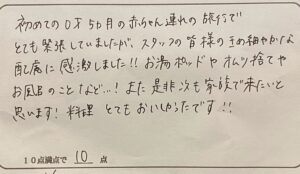 初めての0才5ヵ月の赤ちゃん連れの旅行で
とても緊張していましたが、スタッフの皆様のきめ細やかな
配慮に感激しました!!お湯ポットやオムツ捨てや
お風呂のことなど…!また是非次も家族で来たいと
思います!料理 とてもおいしかったです!!
10点満点で 10 点